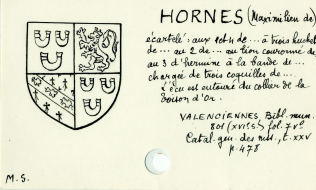 HORNES (Maximilien de)
écartelé: aux 1 et 4 de ... à trois huchets
de ... au 2 de ... au lion couronné de
au 3 d'hermine à la bande de ...
chargée de trois coquilles de ...
L'écu est entouré du collier de la
toison d'or.
VALENCIENNES, Bibl. mun.
801 (XVIe s.) fol. 7 v°
Catal. gén. des mss, t. XXV
p. 478
M.S.